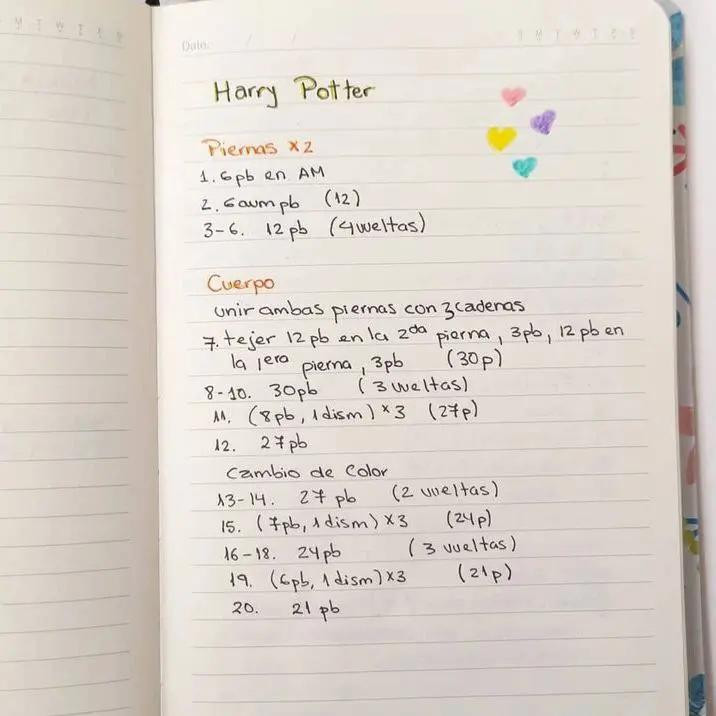 Date: / /
S M T W T F S
Harry Potter
Piernas x2
1. 6pb en AM
2. 6aum pb (12)
3-6. 12pb (4 vueltas)
Cuerpo
unir ambas piernas con 3 cadenas
7. tejer 12pb en la 2da pierna, 3pb, 12 pb en
la 1era pierna, 3pb (30p)
8-10. 30pb (3 vueltas)
11. (8pb, 1dism) x3 (27p)
12. 27pb
Cambio de Color
13-14. 27 pb (2 vueltas)
15. (7pb, 1dism) x3 (24p)
16-18. 24pb (3 vueltas)
19. (6pb, 1dism) x3 (21p)
20. 21 pb